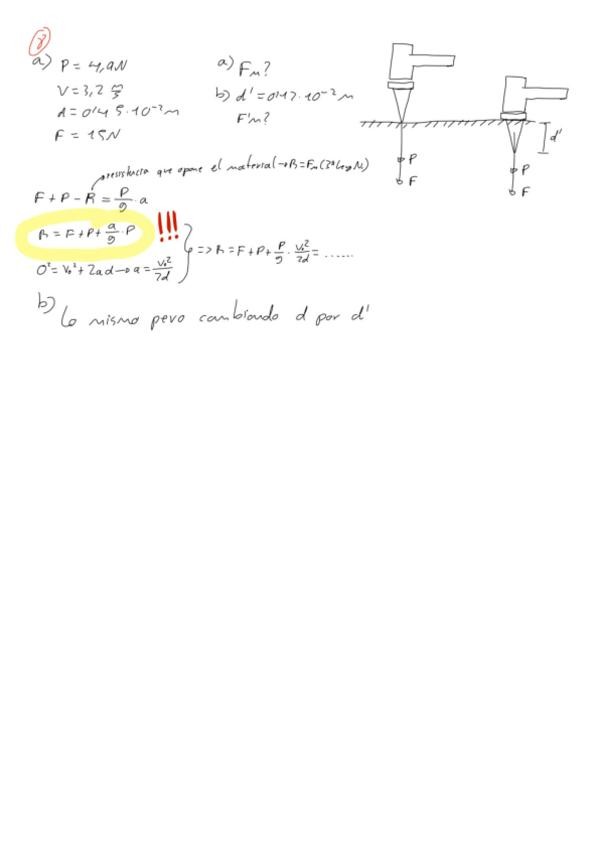 8
a) P = 4,9N
V = 3,2 m/s
d = 0'45·10⁻² m
F = 15N
a) Fm?
b) d' = 0'12·10⁻² m
F'm?
d'
P
F
P
F
resistencia que opone el material → R = Fm (3ª Ley N)
F + P - R = P/g · a
R = F + P + a/g · P !!!
0² = V₀² + 2ad → a = V₀²/2d
=> R = F + P + P/g · V₀²/2d = ......
b) Lo mismo pero cambiando d por d'